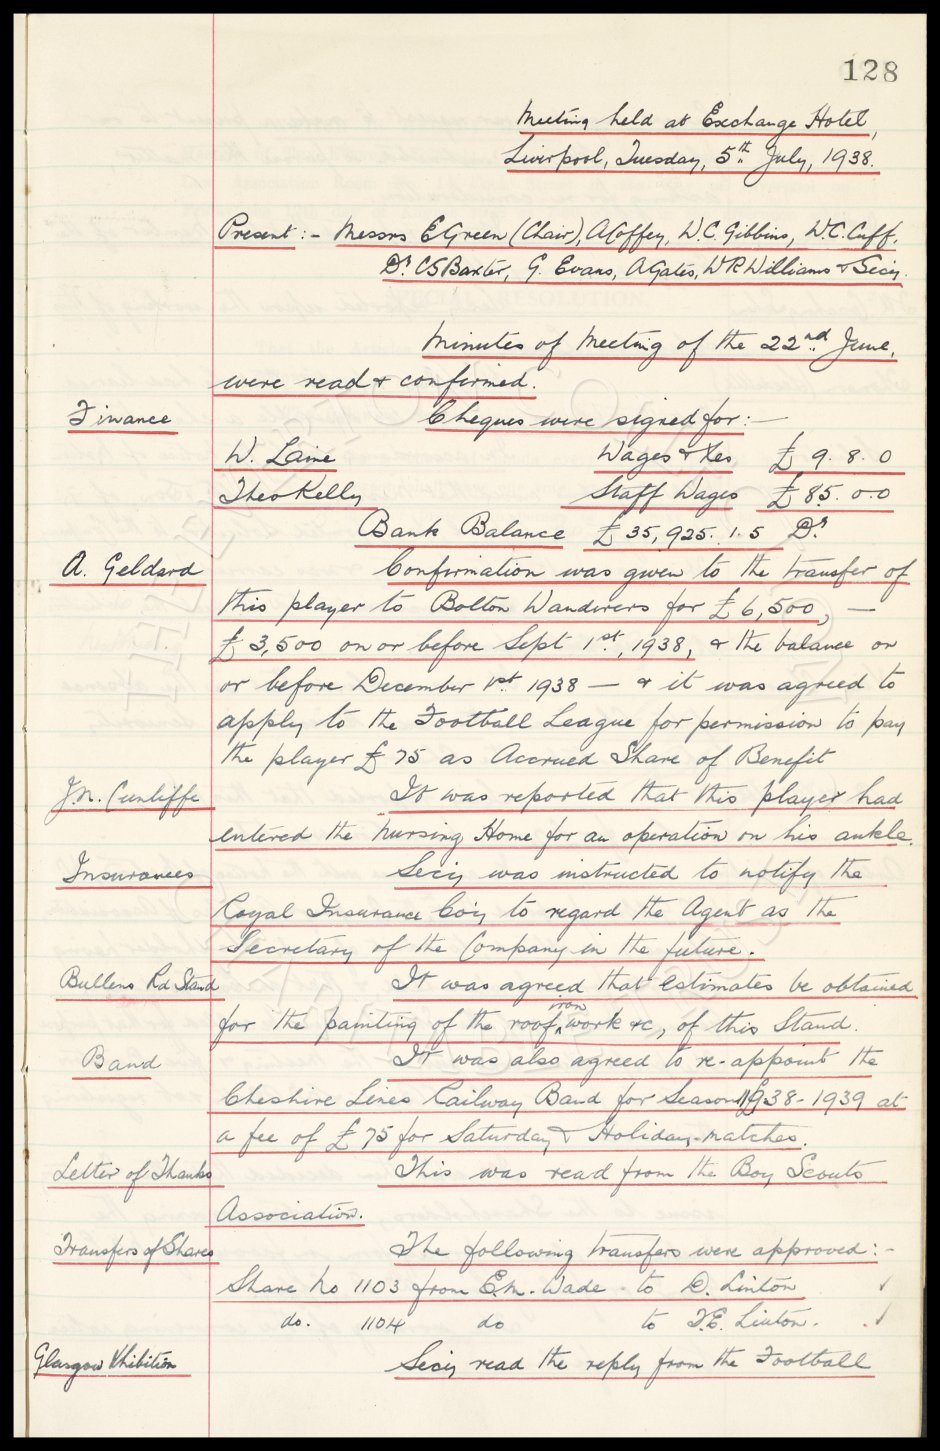 128
Meeting held at Exchange Hotel,
Liverpool, Tuesday, 5th July, 1938.
Present :- Messrs E Green (Chair), A Coffey, W.C. Gibbins, W.C. Cuff,
Dr CS Baxter, G. Evans, A Gates, W R Williams & Secy.
Minutes of Meeting of the 22nd June,
were read & confirmed.
Finance Cheques were signed for:-
W. Laine Wages & Xes £ 9. 8. 0
Theo Kelly Staff Wages £ 85. 0. 0
Bank Balance £ 35,925. 1. 5 Dr
A. Geldard Confirmation was given to the transfer of
this player to Bolton Wanderers for £ 6,500, —
£ 3,500 on or before Sept 1st, 1938, & the balance on
or before December 1st 1938 — & it was agreed to
apply to the Football League for permission to pay
the player £ 75 as Accrued Share of Benefit
J.N. Cunliffe It was reported that this player had
entered the Nursing Home for an operation on his ankle.
Insurances Secy was instructed to notify the
Royal Insurance Co'y to regard the Agent as the
Secretary of the Company in the future.
Bullens Rd Stand It was agreed that estimates be obtained
for the painting of the roof, iron work &c, of this Stand.
Band It was also agreed to re-appoint the
Cheshire Lines Railway Band for Season 1938-1939 at
a fee of £ 75 for Saturday & Holiday matches.
Letter of Thanks This was read from the Boy Scouts
Association.
Transfers of Shares The following transfers were approved:-
Share No 1103 from E.M. Wade to D. Linton ✓
do. 1104 do to T.E. Linton. ✓
Glasgow Xhibition Secy read the reply from the Football